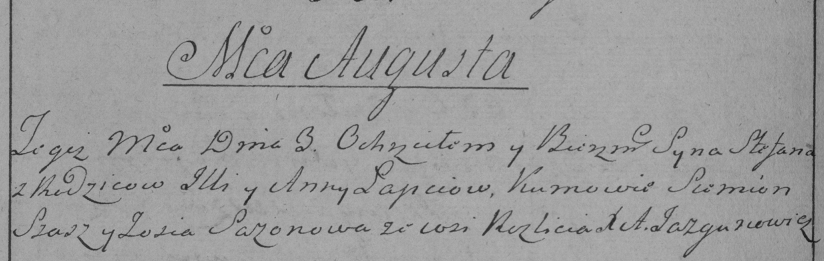 Mca Augusta
Tegoż Mca Dnia 3. Ochrzciłem y Bierzm Syna Stefana
z Rodzicow Illi y Anny Łapciow, Kumowie Siemion
Szasz y Zosia Sazonowa ze wsi X. A. Jazgunowicz